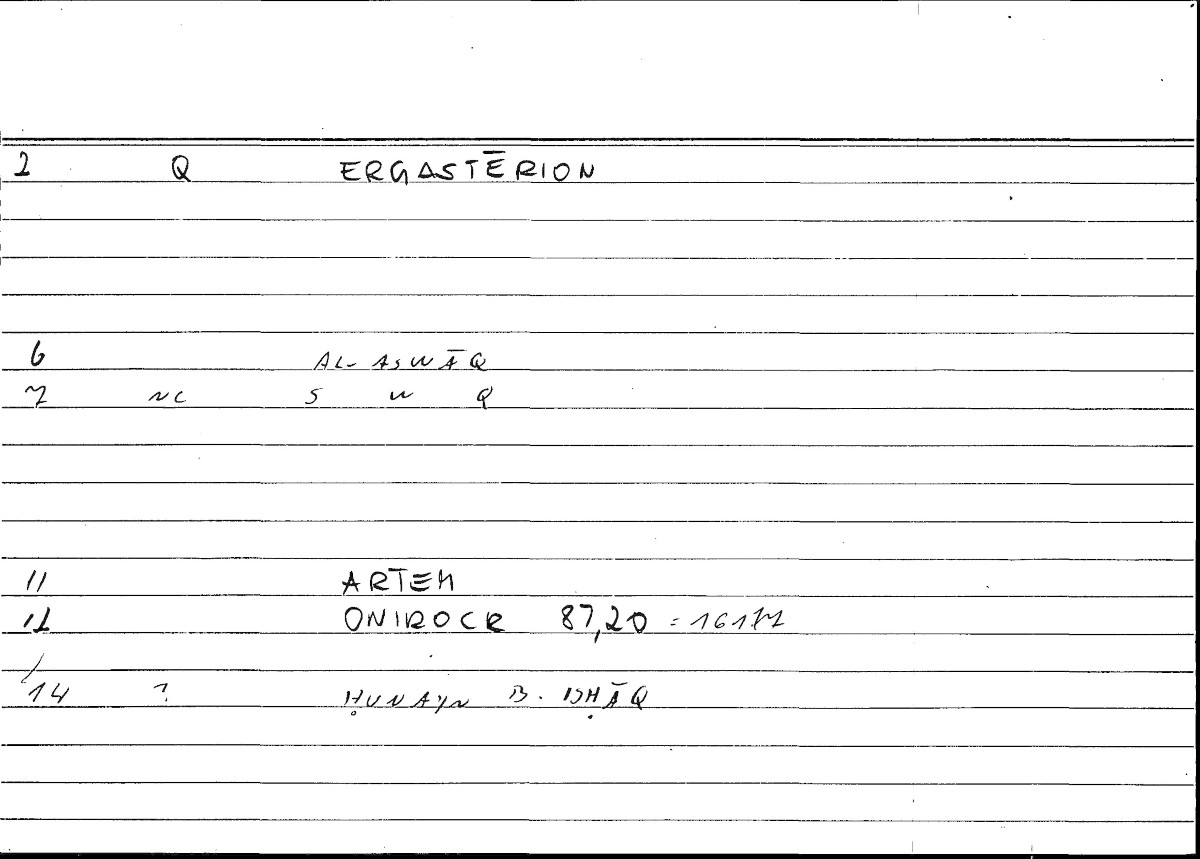 2 Q ERGASTĒRION
6 AL-ASWĀQ
7 NC S W Q
11 ARTEM
12 ONIROCR 87,20 =
14 ? ḤUNAYN B. ISḤĀQ